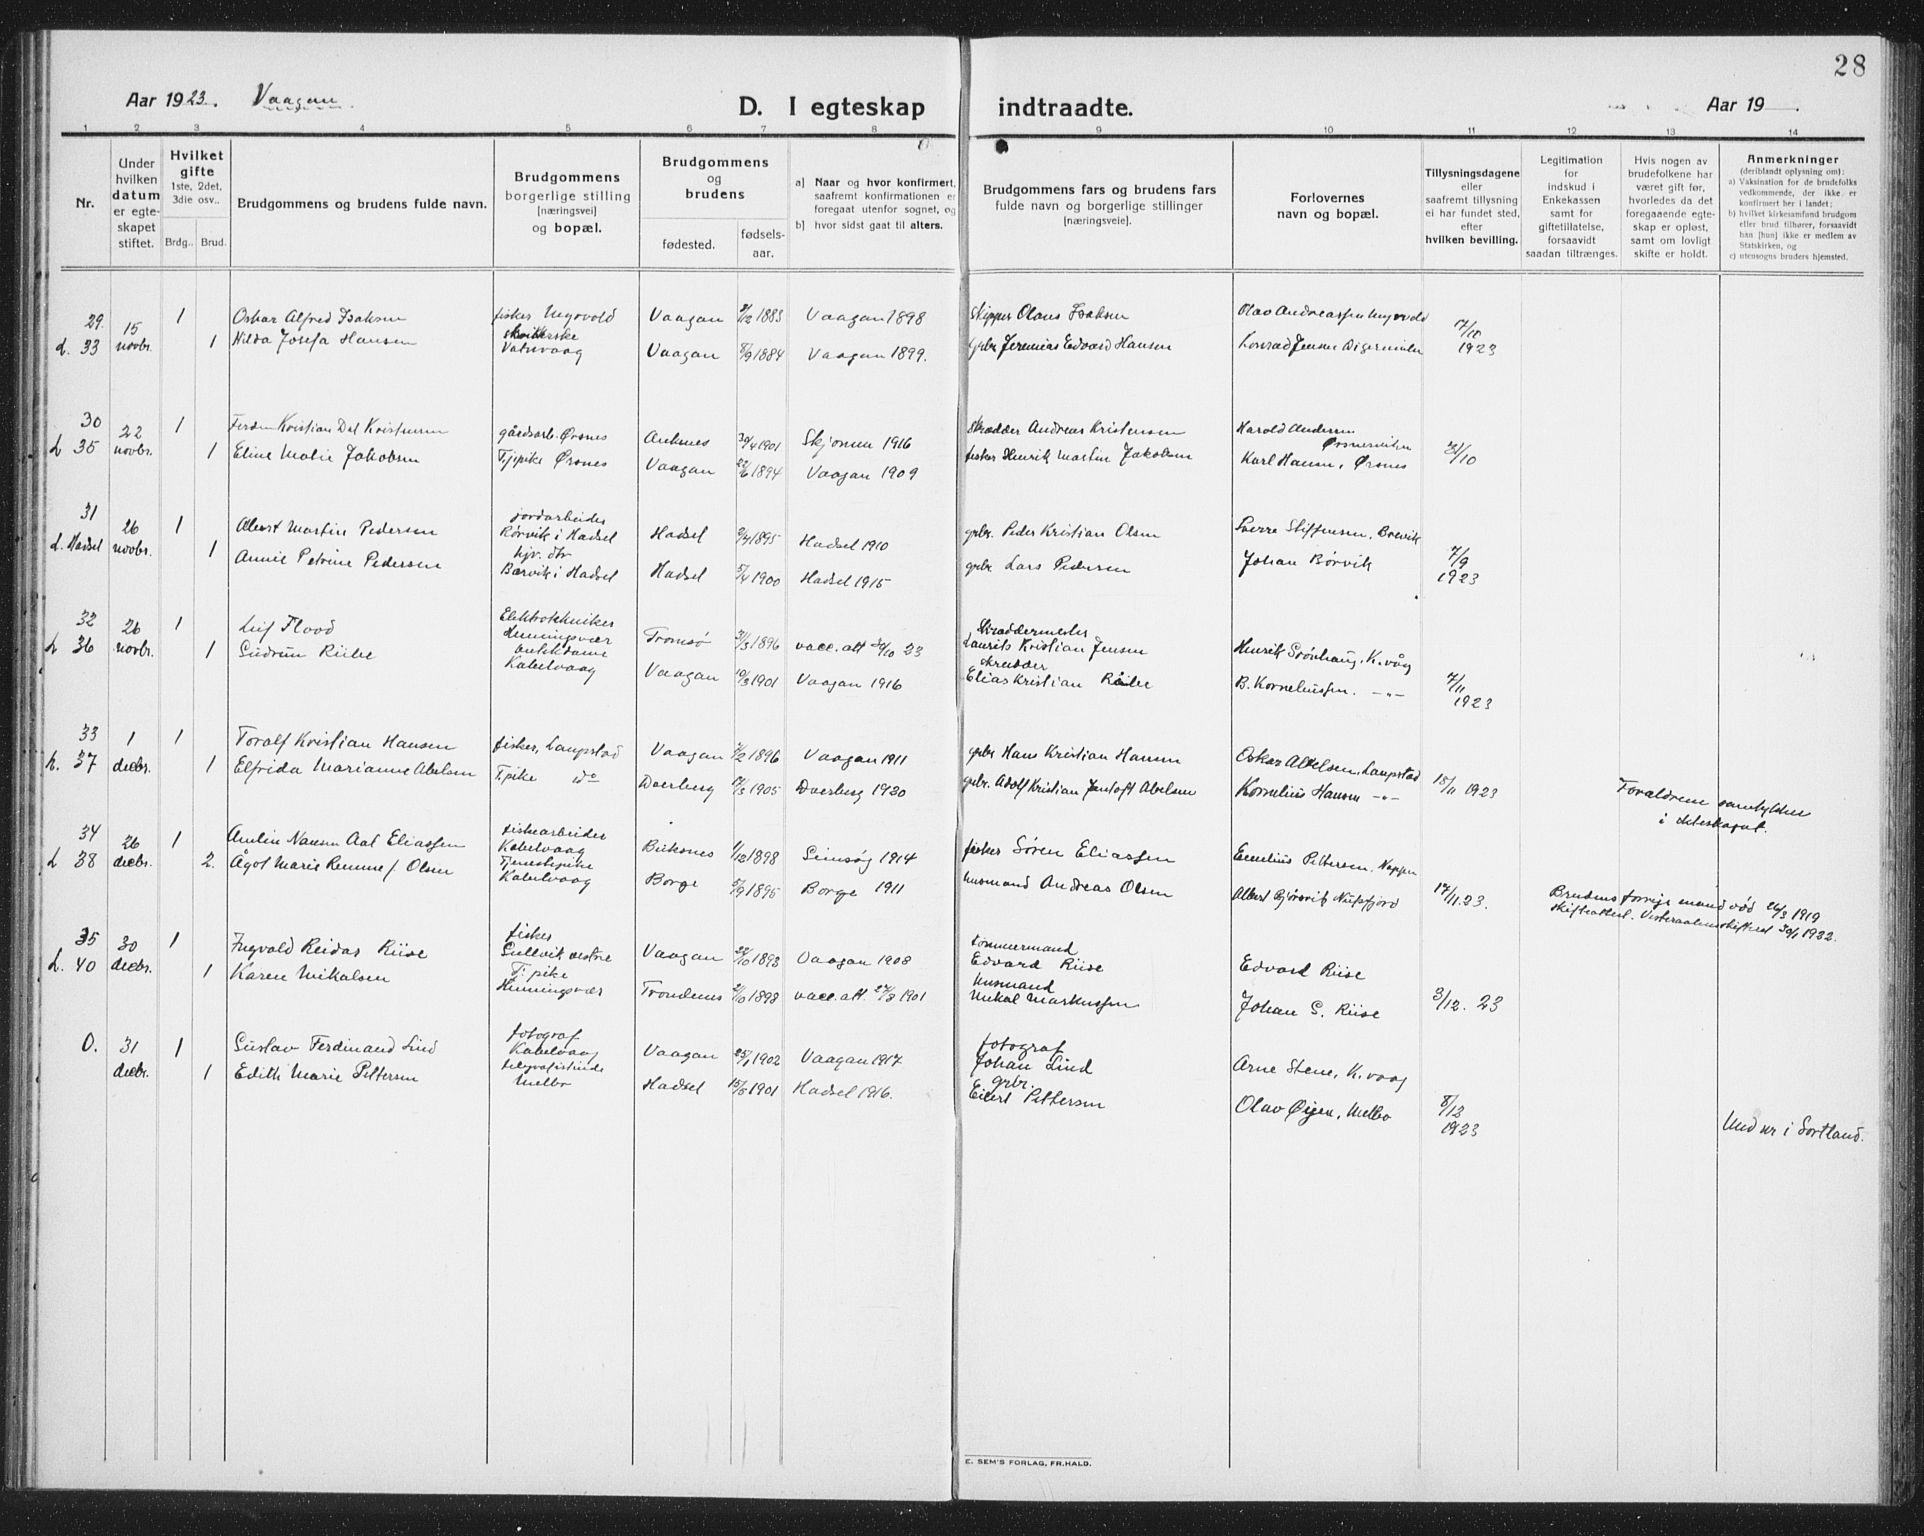 28
Aar 1923. Vaagan
D. I egteskap indtraadte.
Aar 19
1 2 3 4 5 6 7 8 9 10 11 12 13 14
Nr.
Under
hvilken
datum
er egte-
skapet
stiftet.
Hvilket
gifte
1ste, 2det,
3die osv..
Brdg.. Brud.
Brudgommens og brudens fulde navn.
Brudgommens
borgerlige stilling
[næringsvei]
og bopæl.
Brudgommens
og
brudens
fødested.
fødsels-
aar.
a] Naar og hvor konfirmert,
saafremt konfirmationen er
foregaat utenfor sognet, og
b] hvor sidst gaat til alters.
Brudgommens fars og brudens fars
fulde navn og borgerlige stillinger
[næringsveie].
Forlovernes
navn og bopæl.
Tillysningsdagene
eller
saafremt tillysning
ei har fundet sted,
efter
hvilken bevilling.
Legitimation
for
indskud i
Enkekassen
samt for
giftetillatelse,
forsaavidt
saadan tiltrænges.
Hvis nogen av
brudefolkene har
været gift før,
hvorledes da det
foregaaende egte-
skap er opløst,
samt om lovligt
skifte er holdt.
Anmerkninger
(deriblandt oplysning om):
a) Vaksination for de brudefolks
vedkommende, der ikke er
konfirmert her i landet;
b) hvilket kirkesamfund brudgom
eller brud tilhører, forsaavidt
han [hun] ikke er medlem av
Statskirken, og
c) utensogns bruders hjemsted.
29. 15 1 Oskar Alfred Isaksen fisker Vaagan 1883 Vaagan 1898 Skipper Olaus Isaksen Olav Andreassen 7/10
L. 33 novbr. 1 Hilda Josefa Hansen Vatsvaag Vaagan 8/9 1884 Vaagan 1899. grbr Jeremias Edvard Hansen Konrad Jensen 1923
30 22 1 Kristian Kristensen gårdsarb. Ørsnes 1901 1916 Skrædder Andreas Kristensen Harold Andersen
L 35 novbr. 1 Eline Malie Jakobsen Tj.pike Ørsnes Vaagan 22/6 1894 Vaagan 1909 fisker Henrik Martin Jakobsen Karl Hansen, Ørsnes /10
31 26 1 Albert Martin Pedersen jordarbeider
Rørvik i Hadsel Hadsel 1895 Hadsel 1910 grbr. Peder Kristian Olsen Sverre Steffensen, Brevik
L. Hadsel novbr. 1 Annie Petrine Pedersen hjv. dtr
Børvik i Hadsel Hadsel 5/4 1900 Hadsel 1915 grbr. Lars Pedersen Johan Børvik 7/9
1923
32 26 1 Leif Flood Elektrotekniker
Henningsvær Tromsø 1896 vacc. att 30/10 23 Skræddermester
Laurits Kristian Jensen Henrik K.våg
L 36 novbr. 1 Gudrun Riibe
Kabelvaag Vaagan 1901 Vaagan 1916 skrædder
Elias Kristian Riibe B. Korneliussen. -"- 7/11
1923
33 1 1 Toralf Kristian Hansen fisker, Laupstad Vaagan 1896 Vaagan 1911 grbr Hans Kristian Hansen Oskar Abelsen, Laupstad
h. 37 decbr. 1 Elfrida Marianne Abelsen Tj.pike do Dverberg 1905 Dverberg 1920 grbr. Adolf Kristian Jentoft Abelsen Kornelius Hansen -"- 18/11 1923 Forældrene samtykker
i ekteskapet.
34 26 1 Eliassen fiskearbeider
Kabelvaag Buksnes 1/12 1898 1914 fisker Søren Eliassen Emelius Pettersen, Nappen
L 38 decbr. 2. Ågot Marie Remme f. Olsen Tjenestepike
Kabelvaag Borge 5/9 1895 Borge 1911 Husmand Andreas Olsen Albert Nusfjord 17/11.23. Brudens forrige mand død 26/3 1919
skifteattest. 30/1 1922.
35 30 1 Ingvald Reidar Riise fisker
Gullvik vestre Vaagan 22/10 1893 Vaagan 1908 tømmermand
Edvard Riise Edvard Riise
L. 40 decbr. 1 Karen Mikalsen Tj.pike
Henningsvær Trondenes 1898 vacc. att. 27/8 1901 Husmand
Mikal Markussen Johan S. Riise 3/12. 23
0. 31 1 Gustav Ferdinand Lind fotograf
Kabelvaag Vaagan 25/1 1902 Vaagan 1917 fotograf
Johan Lind Arne Stene, K.vaag
decbr. 1 Edith Marie Pettersen telegrafistinde
Melbo Hadsel 15/5 1901 Hadsel 1916. grbr.
Eilert Pettersen Olav Øijen, Melbo 8/12
1923 Und nr i Sortland.
E. SEM'S FORLAG, FR.HALD.